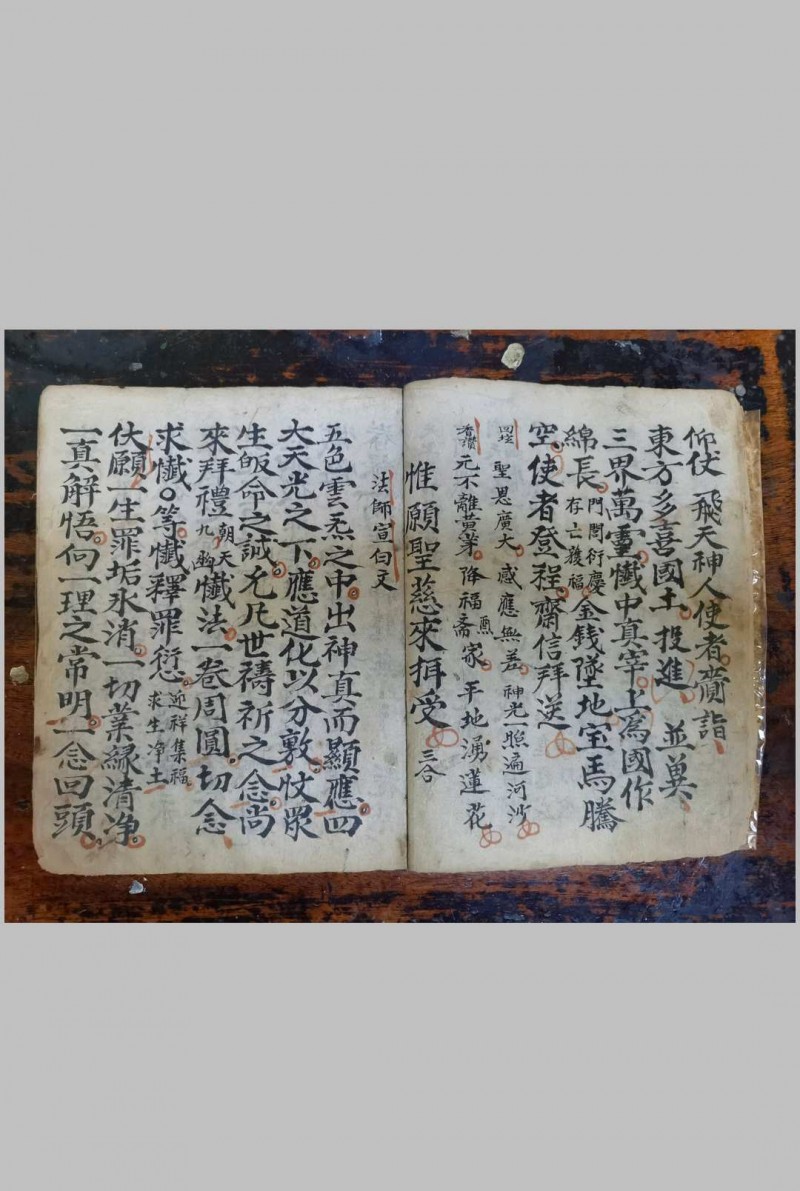 仰仗 飛天神人使者賫詣
東方多喜國土投進 並奠
三界萬靈懺中真宰上為國作
綿長門閭衍慶存亡獲福金錢墜地宝馬騰
空使者登程齋信拜送
聖恩廣大感應無差神光一照遍河沙
元不離黃芽降福齋家平地湧蓮花
惟願聖慈來拜受三合
法師宣白文
五色雲炁之中出神真而顯應四
大天光之下應道化以分敷仗眾
生皈命之誠允凡世禱祈之念尚
來拜禮朝天九幽懺法一卷周圓切念
求懺〇等懺釋罪愆迎祥集福求生净土
伏願一生罪垢氷消一切業緣清净
一真解悟向一理之常明一念回頭